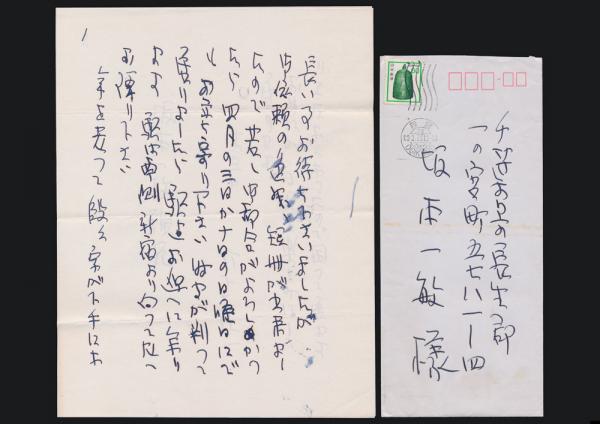 1
長い事お待ち下さいましたが
御依頼の色紙 短冊が出来まし
たので 若し御都合がよろしかつ
たら 四月の三日か十日の日曜日にで
も お立ち寄り下さい 時間が判つて
居りましたら 駅迄お迎へに参り
ます 駅は西側新宿より向つて左へ
お降り下さい
年を老つて段々字が下手にな
千葉県長生郡
一の宮町五七八一ー四
坂本一敏様